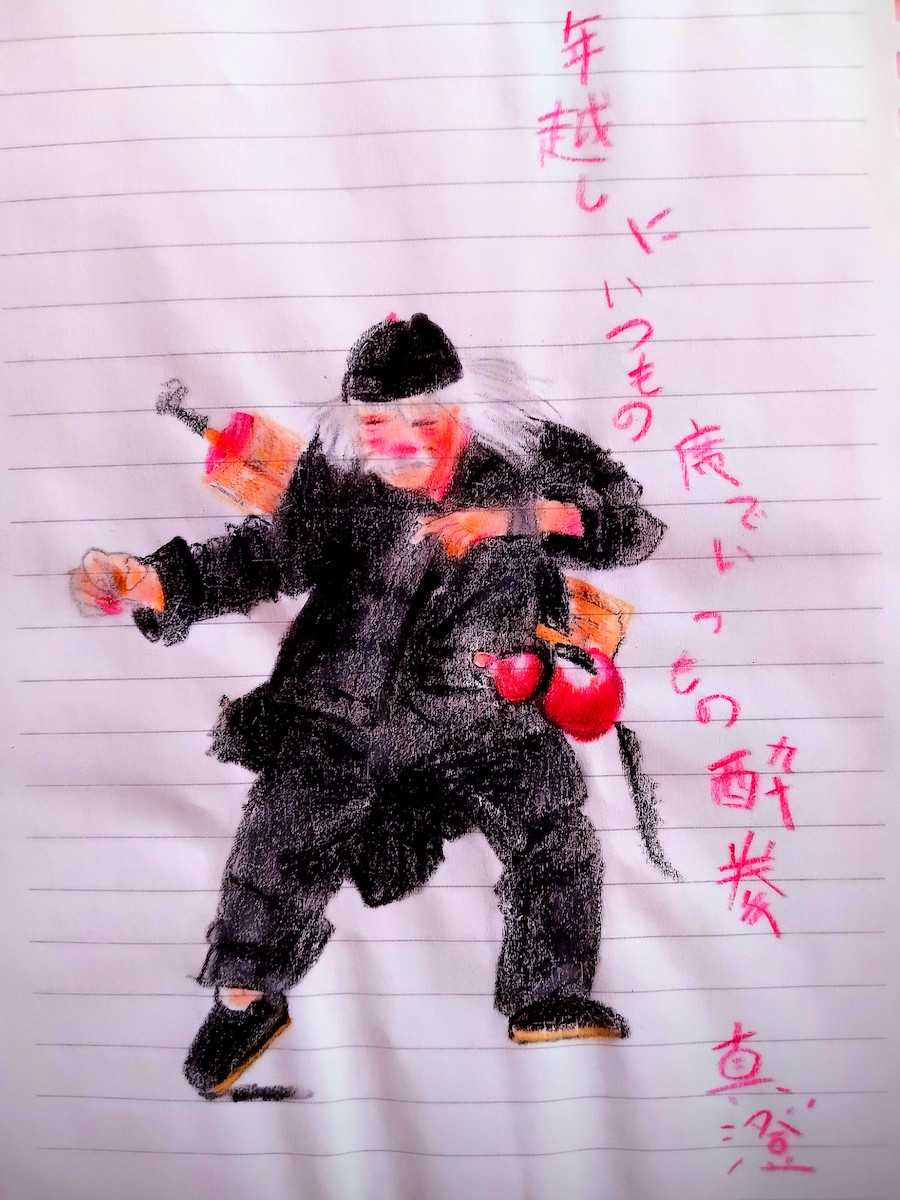 年越しにいつもの席でいつもの酔拳
真澄